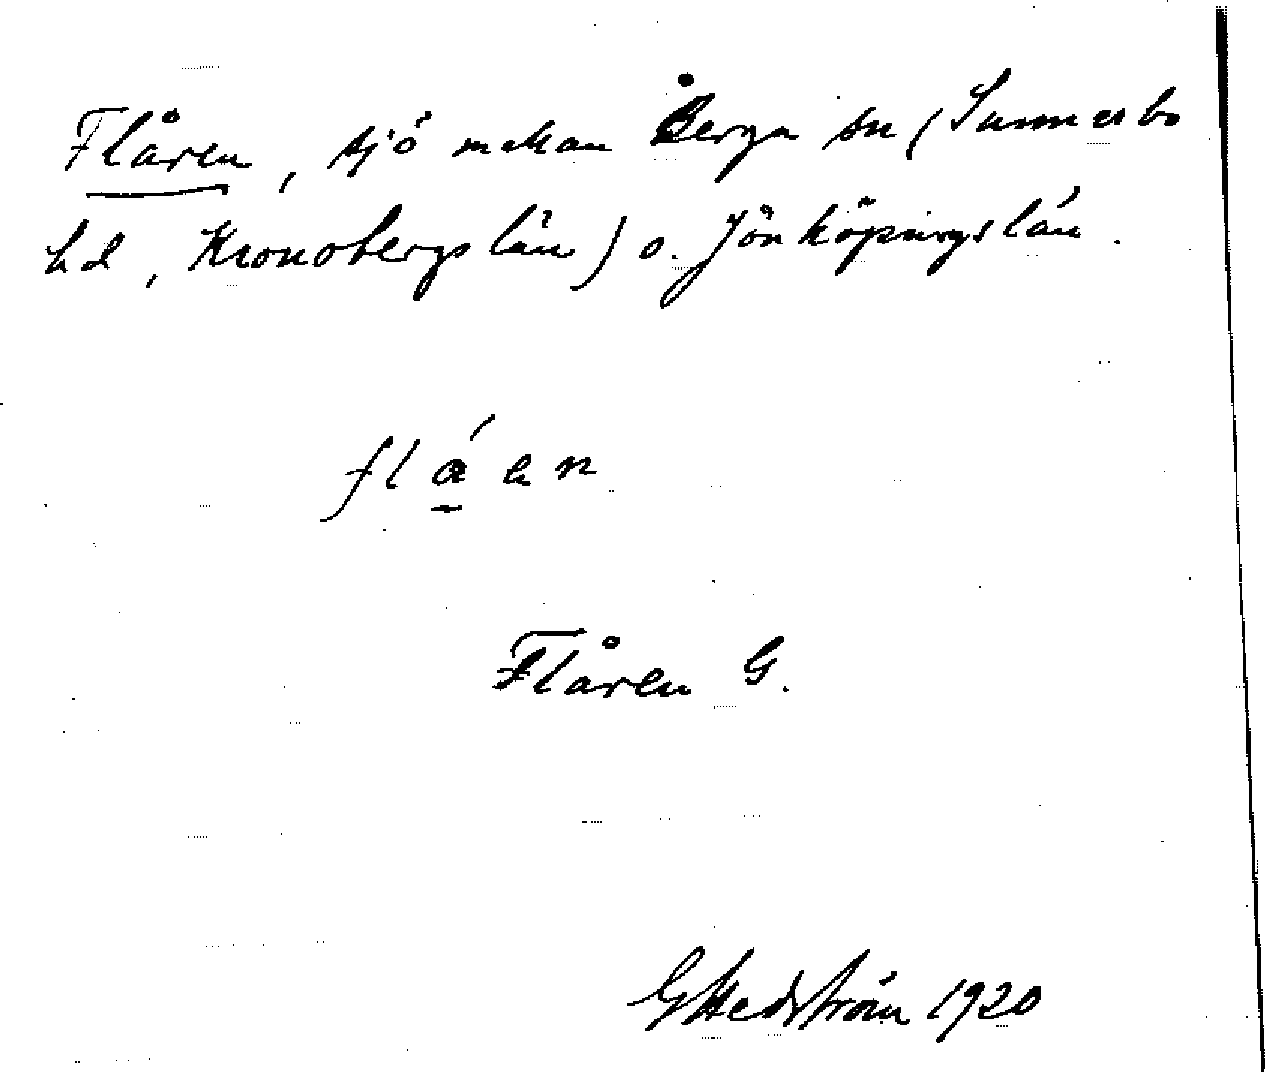 Flåren, sjö mellan Berga sn (Sunnerbo
hd, Kronobergs län) o. Jönköpings län.
Flåren G.
GHedström 1920